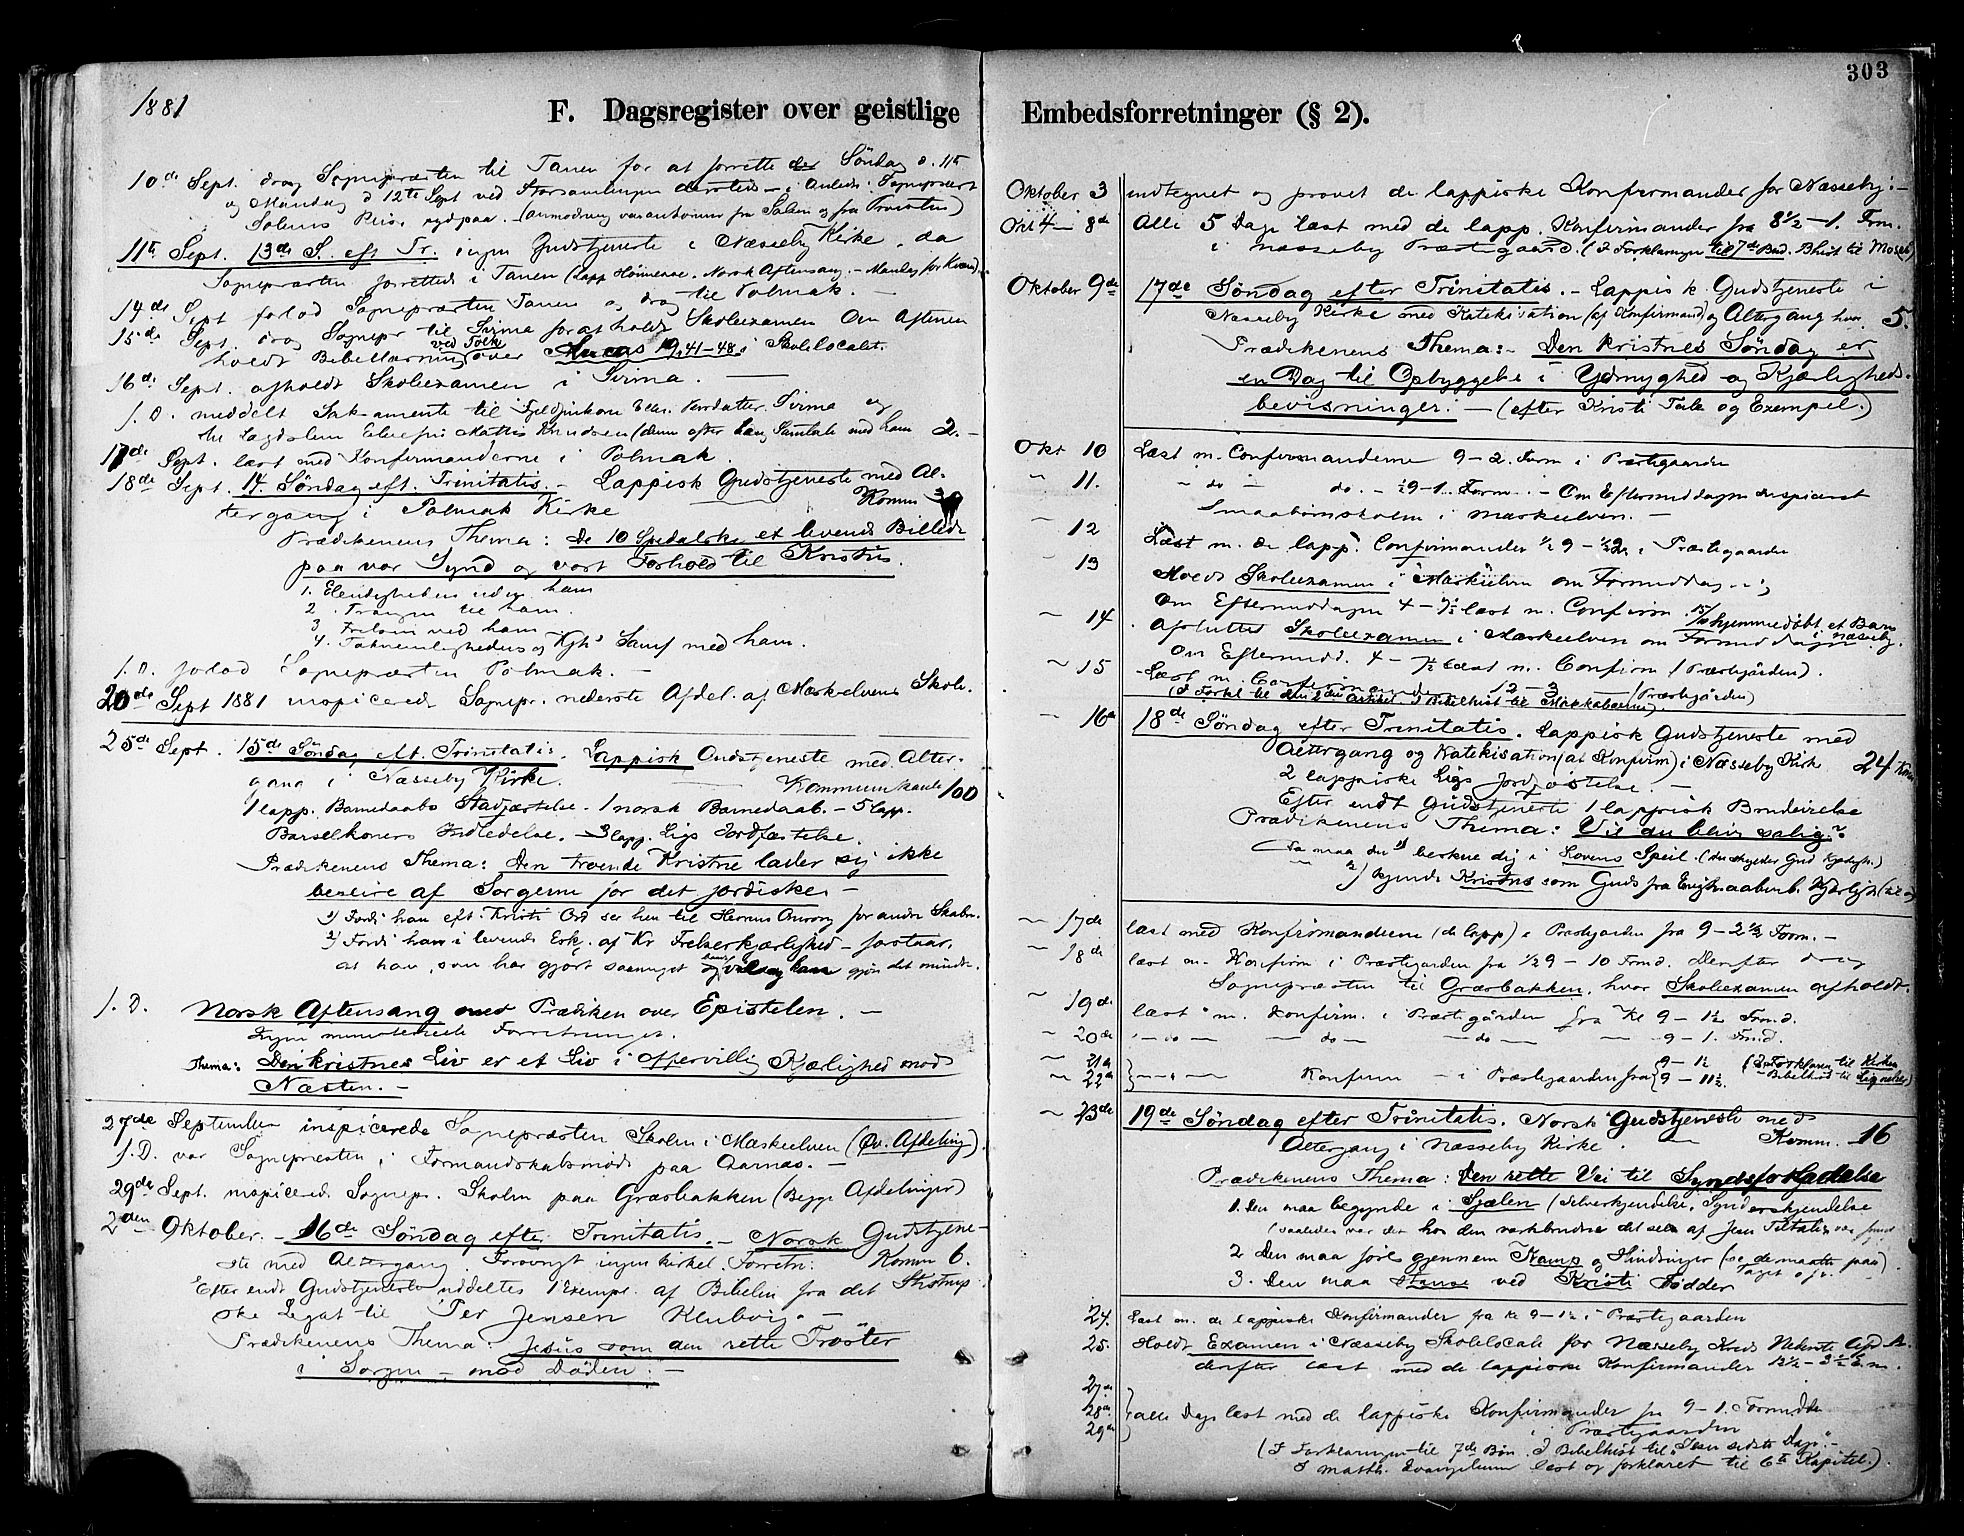 303
1881
F. Dagsregister over geistlige Embedsforretninger (§ 2).
10de Sept. drog Sognepræsten til Tanen for at forrette Søndag d. 11te
og Mandag d 12te Sept ved Storsamlingen
11te Sept. 13de S. eft Tr. ingen Gudstjeneste i Næsseby Kirke, da
Sognepræsten forrettede i Tanen (Lapp Høimesse. Norsk Aftensang. - Mandag for
14de Sept forlod Sognepræsten Tanen og drog til Polmak. -
15de Sept. drog Sognepr til Sirma for at holde Skoleexamen Om Aftenen
holdt Bibellæsning ved Folk over Lucas 19, 41-48 i Skolelocalet.
16de Sept. afholdt Skoleexamen i Sirma. -
s. D. meddelt Sakramente til Sirma og
(denne efter Samtale med ham 2. -
17de Sept. læst med Konfirmanderne i Polmak.
18de Sept. 14. Søndag eft. Trinitatis. - Lappisk Gudstjeneste med Al-
tergang i Polmak Kirke Komm
Prædikenens Thema: De 10 Spedalske et levende Billede
paa vor Synd og vort Forhold til Kristus.
1. Elendigheden uden ham
2. Trangen til ham.
3. Frelsen ved ham
4. Taknemligheden og Samf med ham.
s. D. forlod Sognepræsten Polmak. -
20de Sept 1881 inspicerede Sognepr. nederste Afdel. af Mæskelvens Skole.
25de Sept. 15de Søndag eft. Trinitatis. Lappisk Gudstjeneste med Alter-
gang i Næsseby Kirke. Kommunikante 100
1 lapp. Barnedaabs Stadfæstelse. 1 norsk Barnedaab. - 5 lapp.
Barselkoners Indledelse. - 3 lapp. Ligs Jordfæstelse.
Prædikenens Thema: Den troende Kristne lader sig ikke
beseire af Sorgerne for det jordiske -
1) Fordi han eft. Kristi Ord ser hen til Herrens Omsorg for andre Skabn.
2) Fordi han i levende Erk. af Kr Frelserkjærlighed - forstaar,
at han, som har gjort saameget og kan gjøre det mindre.
s. D. Norsk Aftensang med Prædiken over Epistelen. -
Ingen ministerielle Forretninger.
Thema: Den kristnes Liv er et Liv i offervillig Kjærlighed mod
Næsten. -
27de September inspicerede Sognepræsten Skolen i Mæskelven (Øv. Afdeling).
s. D. var Sognepræsten i Formandskabsmøde paa Aarnæs. -
29de Sept. inspicered. Sognepr. Skolen paa Græsbakken (Begge Afdelinger)
2den Oktober. - 16de Søndag efter Trinitatis. - Norsk Gudstjene-
ste med Altergang. Forøvrigt ingen kirkel. Forretn. Komm 6.
Efter endt Gudstjeneste uddeltes 1 Exempl. af Bibelen fra det
ske Legat til Per Jensen Klubvig. -
Prædikenens Thema: Jesus som den rette Trøster
i Sorgen - mod Døden: -
Oktober 3 indtegnet og prøvet de lappiske Konfirmander for Næsseby. -
Okt 4 - 8de Alle 5 Dage læst med de lapp. Konfirmander fra 8½ - 1. Form.
i Næsseby Præstegaard. (I Forklaringen til 7de Bud. Bhist til Moses)
Oktober 9de 17de Søndag efter Trinitatis. - Lappisk Gudstjeneste i
Næsseby Kirke med Katekisation (af Konfirmand) og Altergang hvor 5.
Prædikenens Thema: - Den kristnes Søndag er
en Dag til Opbyggelse i Ydmyghed og Kjærligheds-
bevisninger. - (efter Kristi Tale og Exempel.)
Okt 10 Læst m. Confirmanderne 9-2. Form i Præstegaarden
" 11. " do - do. - ½9-1. Form. - Om Eftermiddagen inspiceret
Smaabørnskolen i Mæskelven. -
" 12 Læst m. de lapp. Confirmander ½9 - i Præstegaarden
" 13 Holdt Skoleexamen i Mæskelven om Formiddag
Om Eftermiddagen 4 - 7½ læst m. Confirm. hjemmedøbt et Barn
i Næsseby.
" 14 Afsluttet Skoleexamen i Mæskelven om Formiddagen
Om Eftermidd. 4 - 7½ læst m. Confirm (Præstegården).
" 15 Læst m. Confirmanderne 12-3 (Præstegården)
(I Forkl til den Artikel. I Bibelhist til Makkabæerne).
" 16de 18de Søndag efter Trinitatis. Lappisk Gudstjeneste med
Altergang og Katekisation (af Konfirm) i Næsseby Kirk 24 Kom
2 lappiske Ligs Jordfæstelse. -
Efter endt Gudstjeneste 1 lappisk Brudevielse
Prædikenens Thema: Vil du bliv salig?
Da maa du 1) beskue dig i Lovens Speil.
2) kjende Kristus som Guds
" 17de læst med Konfirmanderne (de lapp) i Præstegarden fra 9-2½ Form. -
" 18de læst m. Konfirm i Præstegarden fra ½9 - 10 Formd. Derefter drog
Sognepræsten til Græsbakken, hvor Skoleexamen afholdt.
" 19de læst m. Konfirm. i Præstegården fra Kl 9 - 1½ Formd.
" 20de " - do - - do - - do - 9-1. Formd.
" 21de 9-1½ (I Forklaren til Kirken
" 22de Konfirm - i Præstegaarden fra 9-11½. Bibelhist til Lignelser)
" 23de 19de Søndag efter Trinitatis. Norsk Gudstjeneste med
Altergang i Næsseby Kirke. Komm. 16
Prædikenens Thema: Den rette Vei til Syndsforladelse
1. Den maa begynde i Sjælen (Selverkjendelse, Synderkjendelse
(saaledes var det hos den værkbrudne
2 Den maa føre gjennem Kamp og Hindringer
3. Den maa standse ved Kristi Fødder
24. Læst m. de lappiske Konfirmander fra Kl 9-1½ i Præstegaarden
25. Holdt Examen i Næsseby Skolelocale for Næsseby Kreds Nederste Afd
derefter læst med de lappiske Konfirmander 12½ - 3½ Em.
27de
28de alle Dage læst med de lappiske Konfirmander fra 9-1. Formidd
29de i Præstegaarden
(I Forklaringen til 7de Bøn. I Bibelhist til "Jesu sidste Dage". -
I Matth. Evangelium læst og forklaret til 6te Kapitel.)